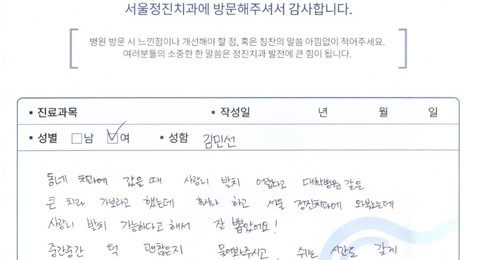 서울정진치과에 방문해주셔서 감사합니다.
병원 방문 시 느낀점이나 개선해야 할 점, 혹은 칭찬의 말씀 아낌없이 적어주세요.
여러분들의 소중한 한 말씀은 정진치과 발전에 큰 힘이 됩니다.
• 진료과목 • 작성일 년 월 일
• 성별 □남 ☑여 • 성함 김민선
동네 치과에 갔을때 사랑니 발치 어렵다고 대학병원 같은
큰 치과 가보라고 했는데 혹시나 하고 서울 정진치과에 와봤는데
사랑니 발치 가능하다고 해서 잘 뽑았어요!
중간중간 턱 괜찮은지 물어봐주시고, 쉬는 시간도 길게